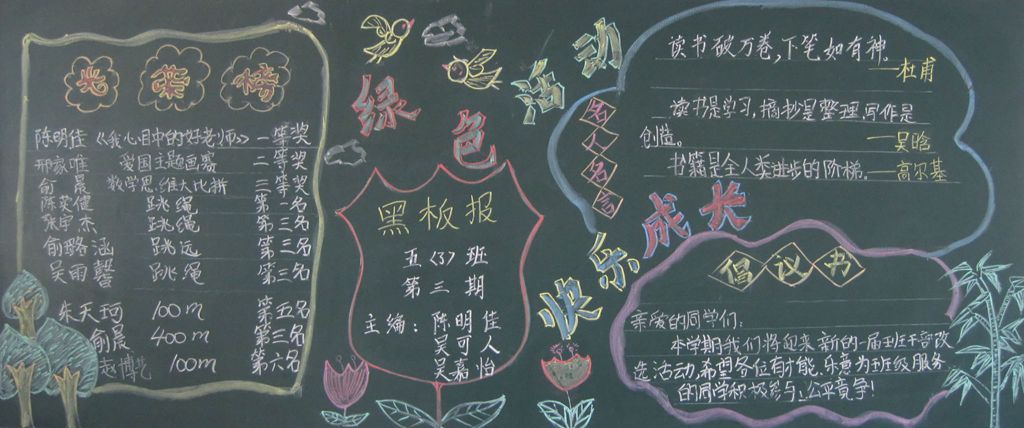 光荣榜
陈明佳 《我心目中的好老师》 一等奖
邢家唯 爱国主题画赛 二等奖
俞晨 数学思维大比拼 三等奖
陈奕健 跳绳 第一名
张宇杰 跳绳 第三名
俞璐涵 跳远 第三名
吴雨馨 跳绳 第三名
朱天珂 100m 第五名
俞晨 400m 第三名
博 100m 第六名
绿色活动
快乐成长
黑板报
五〈3〉班
第三期
主编：陈明佳
吴可人
吴嘉怡
名人名言
读书破万卷,下笔如有神。
——杜甫
读书是学习，摘抄是整理,写作是
创造。 ——吴晗
书籍是全人类进步的阶梯。——高尔基
倡议书
亲爱的同学们：
本学期我们将迎来新的一届班干部改
选活动,希望各位有才能、乐意为班级服务
的同学积极参与,公平竞争!